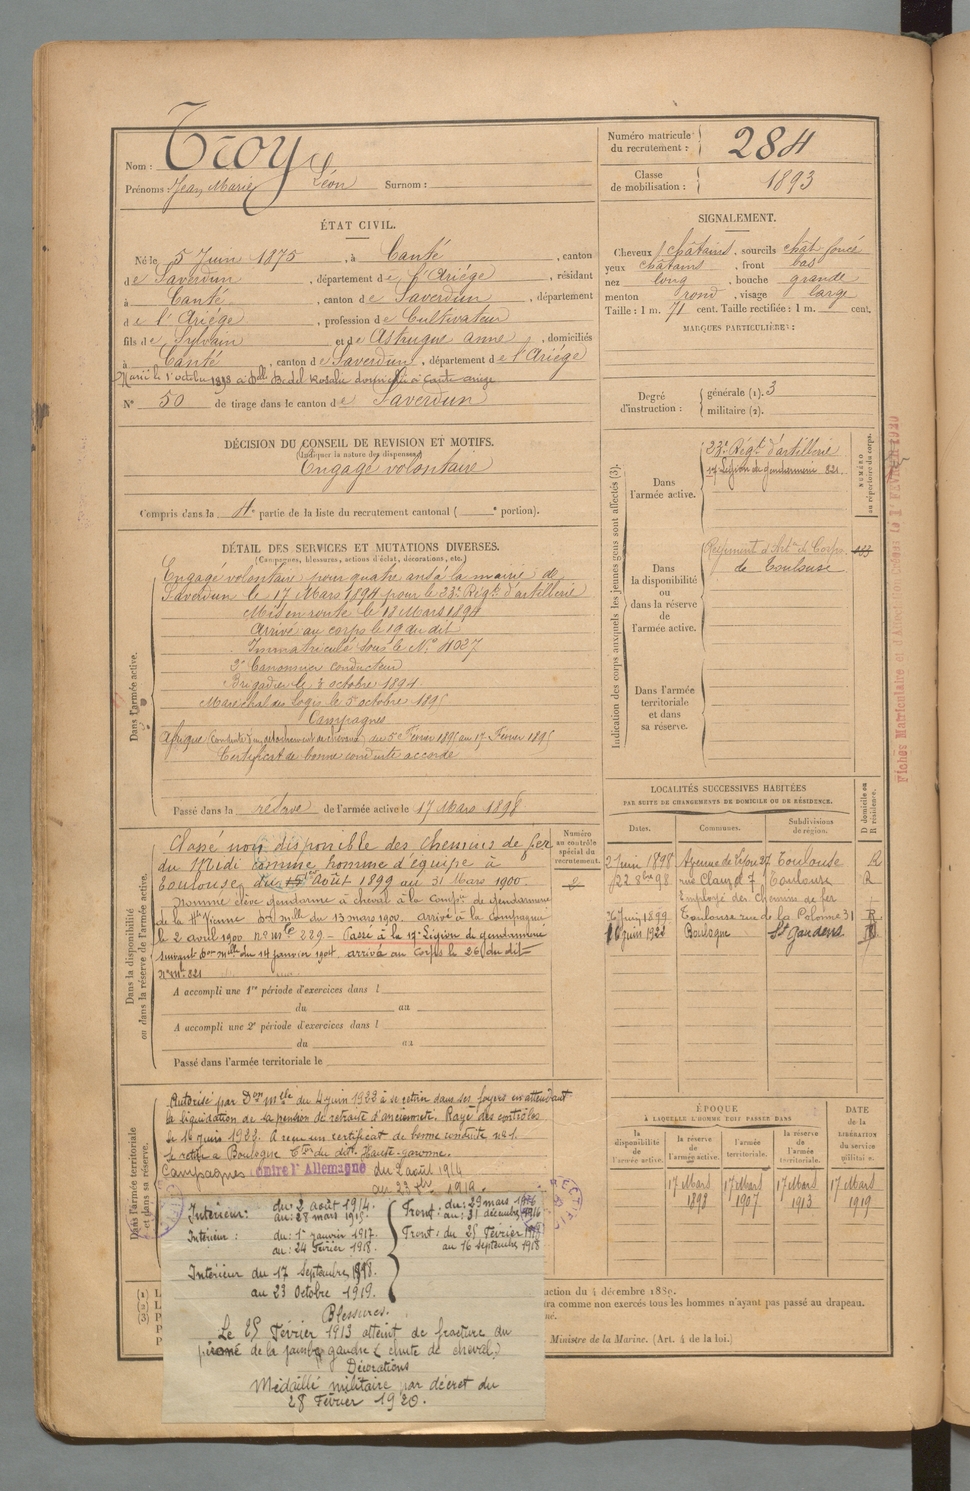 Nom : Troy
Prénoms : Jean Marie Léon Surnom :
Numéro matricule du recrutement : 284
Classe de mobilisation : 1893
ÉTAT CIVIL.
Né le 5 Juin 1875, à Canté, canton
de Saverdun, département de l'Ariége, résidant
à Canté, canton de Saverdun, département
de l'Ariége, profession de Cultivateur
fils de Sylvain et de Astrugue Anne, domiciliés
à Canté, canton de Saverdun, département de l'Ariége
Marié le 1er octobre 1898 à Delle Bedel Rosalie domiciliée à Canté Ariège
N° 50 de tirage dans le canton de Saverdun
SIGNALEMENT.
Cheveux châtains, sourcils chât. foncé
yeux châtains, front bas
nez long, bouche grande
menton rond, visage large
Taille : 1 m. 71 cent. Taille rectifiée : 1 m. cent.
MARQUES PARTICULIÈRES :
DÉCISION DU CONSEIL DE REVISION ET MOTIFS.
(Indiquer la nature des dispenses)
Engagé volontaire
Compris dans la 4e partie de la liste du recrutement cantonal ( e portion).
Degré d'instruction :
générale (1). 3
militaire (2).
Indication des corps auxquels les jeunes gens sont affectés (3).
Dans l'armée active.
23e Régt d'artillerie
17e Légion de gendarmerie 821.
NUMÉRO au répertoire du corps.
Dans la disponibilité ou dans la réserve de l'armée active.
Régiment d'Artie de Corps 163
de Toulouse
Dans l'armée territoriale et dans sa réserve.
DÉTAIL DES SERVICES ET MUTATIONS DIVERSES.
(Campagnes, blessures, actions d'éclat, décorations, etc.)
Dans l'armée active.
Engagé volontaire pour quatre ans à la mairie de
Saverdun le 17 Mars 1894 pour le 23e Régt d'artillerie
Mis en route le 18 Mars 1894
Arrivé au corps le 19 du dit
Immatriculé sous le No 4037
2e Canonnier conducteur
Brigadier le 3 octobre 1894
Maréchal des logis le 5 octobre 1895
Campagnes
Afrique (Conduite d'un détachement de chevaux) du 5 Février 1895 au 17 Février 1895
Certificat de bonne conduite accordé
Passé dans la réserve de l'armée active le 17 Mars 1898
Dans la disponibilité ou dans la réserve de l'armée active.
Numéro au contrôle spécial du recrutement.
Classé non disponible des Chemins de fer
du Midi comme homme d'équipe à
Toulouse, du Août 1899 au 31 Mars 1900.
Nommé élève gendarme à cheval à la Compie de gendarmerie
de la Hte Vienne Don mlle du 13 mars 1900. arrivé à la compagnie
le 2 avril 1900 No Mle 289 - Passé à la 17e Légion de gendarmerie
suivant Don mlle du 14 janvier 1904. arrivé au Corps le 26 du dit
No Mle 821
A accompli une 1re période d'exercices dans l
du au
A accompli une 2e période d'exercices dans l
du au
Passé dans l'armée territoriale le
LOCALITÉS SUCCESSIVES HABITÉES
PAR SUITE DE CHANGEMENTS DE DOMICILE OU DE RÉSIDENCE.
Dates. Communes. Subdivisions de région. D domicile ou R résidence.
2 Juin 1898 Avenue de Lyon 27 Toulouse R
22 8bre 98 rue Clauzel 7 Toulouse R
Employé des Chemins de fer
Juin 1899 Toulouse rue de la Colonne 31 R
16 juin 1922 Boulogne St Gaudens
Dans l'armée territoriale et dans sa réserve.
Autorisé par Don mlle du 4 juin 1922 à se retirer dans ses foyers en attendant
la liquidation de sa pension de retraite d'ancienneté. Rayé des contrôles
le 16 juin 1922. A reçu un certificat de bonne conduite no 1.
Se retire à Boulogne Cton du dit. Haute-Garonne.
Campagnes contre l'Allemagne du 2 août 1914
au 23 8bre 1919.
ÉPOQUE
À LAQUELLE L'HOMME DOIT PASSER DANS
la disponibilité de l'armée active.
la réserve de l'armée active.
l'armée territoriale.
la réserve de l'armée territoriale.
DATE de la LIBÉRATION du service militaire.
17 Mars 1898 17 Mars 1907 17 Mars 1913 17 Mars 1919
Intérieur : du 2 août 1914. au : 28 mars 1915.
Front : du : 29 mars au : 31 décembre 1916
Intérieur : du : 1er janvier 1917. au : 24 Février 1918.
Front : du 25 Février au 16 Septembre 1918
Intérieur du 17 Septembre 1918.
au 23 Octobre 1919.
Blessures.
Le 25 Février 1913 atteint de fracture du
péroné de la jambe gauche (chute de cheval)
Décorations
Médaillé militaire par décret du
28 Février 1920.
ction du 4 décembre 1889.
ra comme non exercés tous les hommes n'ayant pas passé au drapeau.
Ministre de la Marine. (Art. 4 de la loi.)